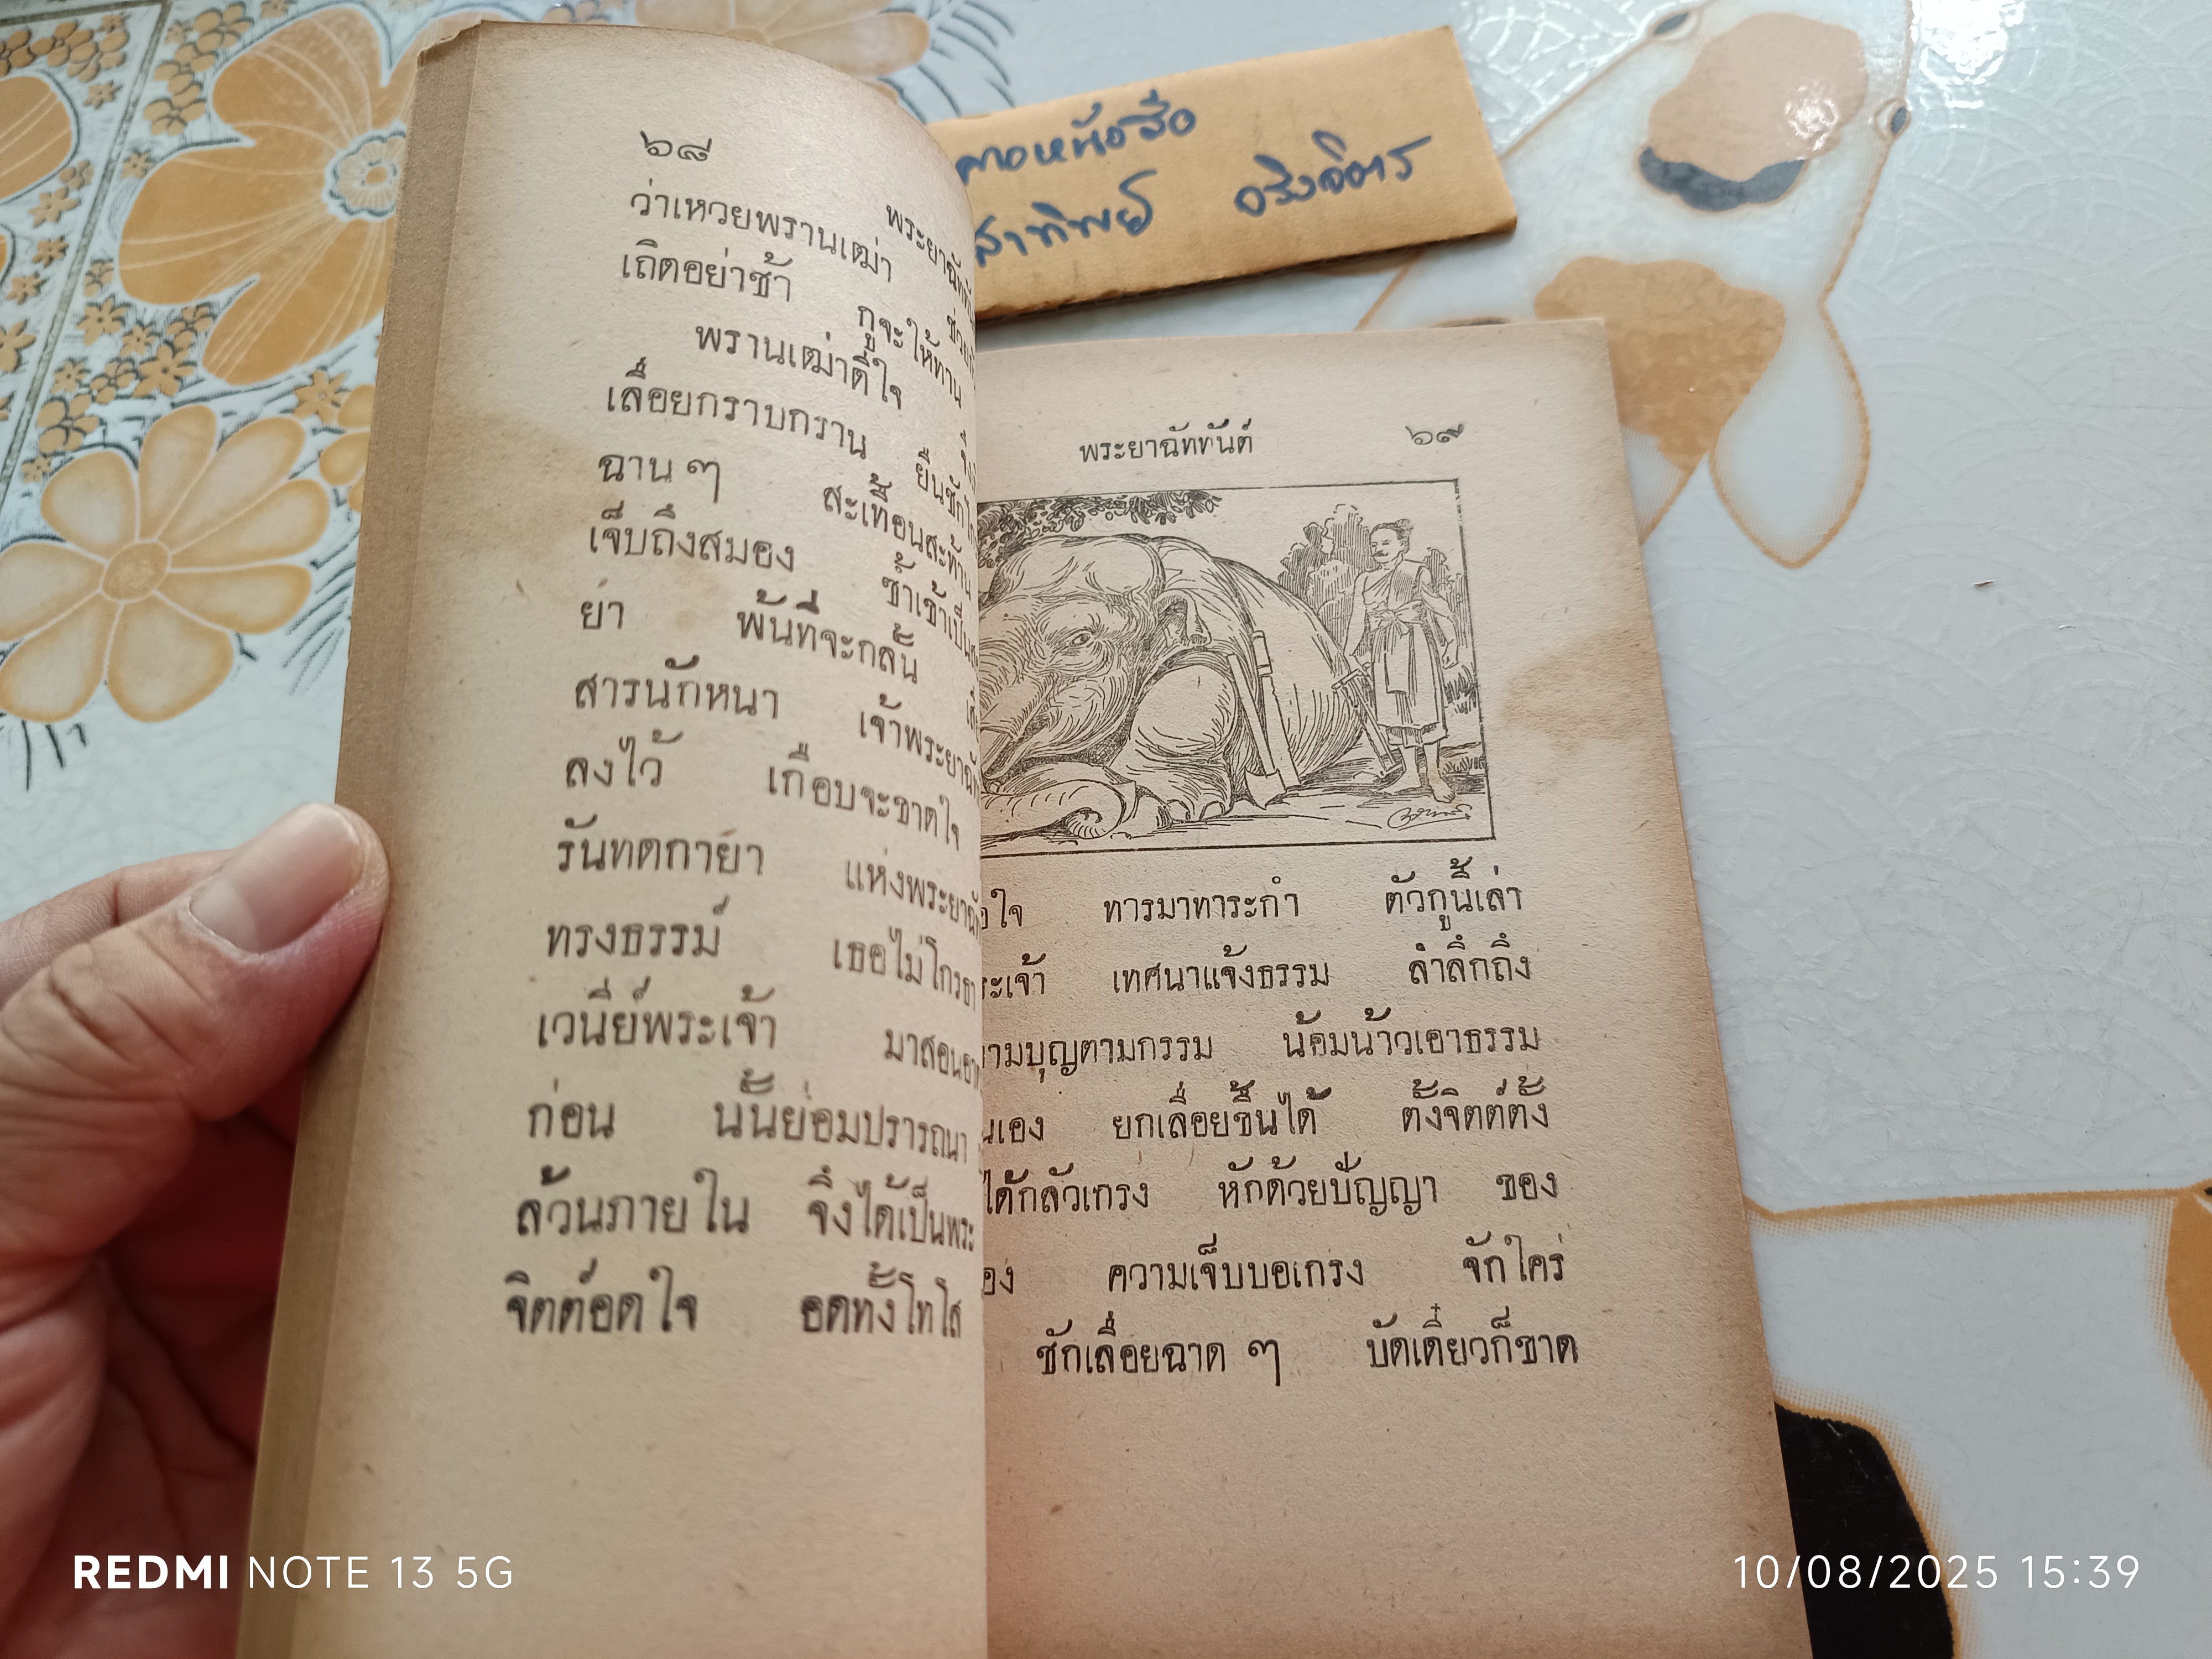 ๖๘
พระยาฉัททันต์
ว่าเหวยพรานเฒ่า ช่วย
เถิดอย่าช้า กูจะให้ทาน
พรานเฒ่าดีใจ
เลื่อยกราบกราน ยืนชัก
ฉาน ๆ สะเทื้อนสะท้าน
เจ็บถึงสมอง ซ้ำเข้าเป็น
ย่า พ้นที่จะกลั้น
สารนักหนา เจ้าพระยา
ลงไว้ เกือบจะขาดใจ
รันทดกายา แห่งพระยา
ทรงธรรม์ เธอไม่โกรธา
เวนีย์พระเจ้า มาสอน
ก่อน นั้นย่อมปรารถนา
ล้วนภายใน จึ่งได้เป็นพระ
จิตต์อดใจ อดทั้งโทโส
พระยาฉัททันต์ ๖๙
ใจ ทารมาทาระกำ ตัวกูนี้เล่า
ระเจ้า เทศนาแจ้งธรรม ลำลึ๊กถึง
ตามบุญตามกรรม น้อมน้าวเอาธรรม
นเอง ยกเลื่อยขึ้นได้ ตั้งจิตต์ตั้ง
ได้กลัวเกรง หักด้วยปัญญา ของ
อง ความเจ็บบอเกรง จักใคร่
ชักเลื่อยฉาด ๆ บัดเดี๋ยวก็ขาด
หนังสือ
สาทิพย์ อริงจิตร
REDMI NOTE 13 5G
10/08/2025 15:39